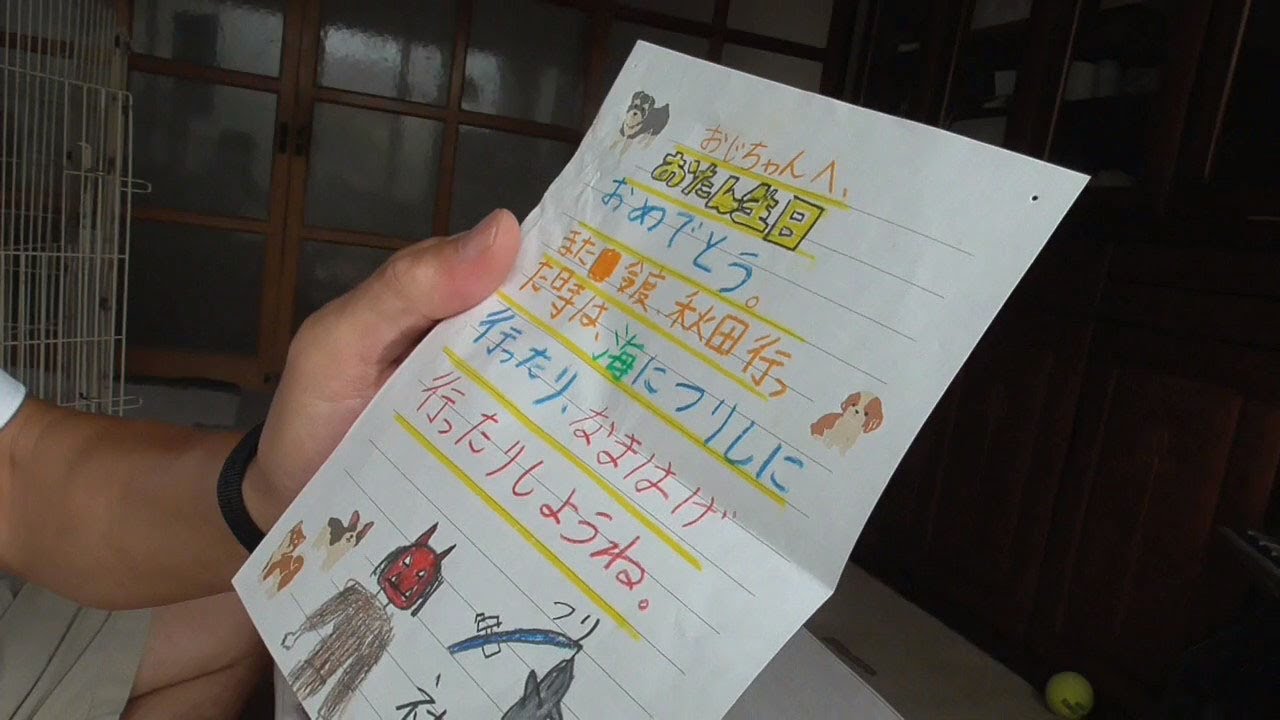 おじちゃんへ、
おたん生日
おめでとう。
また 鍍、秋田行っ
た時は、海につりしに
行ったり、なまはげ
行ったりしようね。
つり